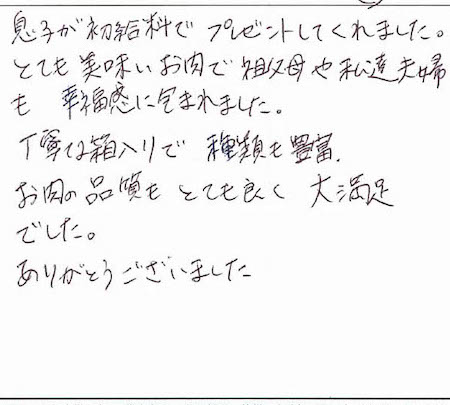 息子が初給料でプレゼントしてくれました。
とても美味いお肉で祖父母や私達夫婦
も幸福感に包まれました。
丁寧な箱入りで種類も豊富.
お肉の品質もとても良く大満足
でした。
ありがとうございました